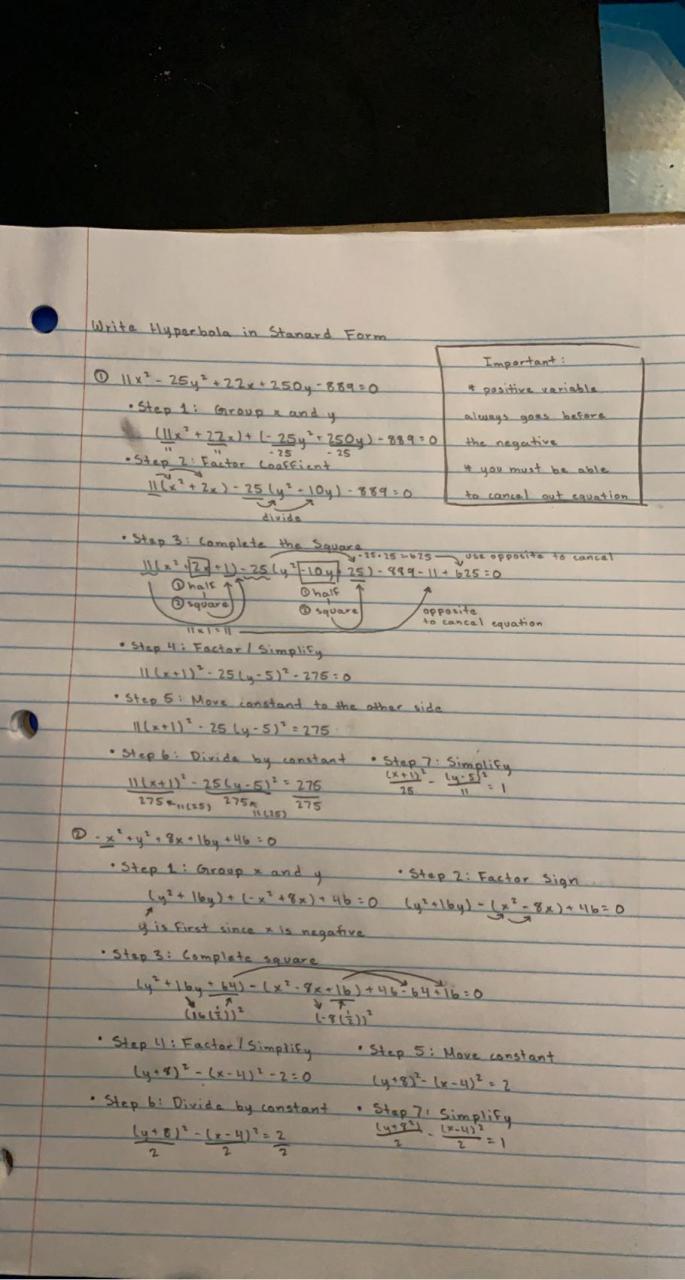 Write Hyperbola in Stanard Form
Important:
* positive variable
always goes before
the negative
* you must be able
to cancel out equation
① 11x² - 25y² + 22x + 250y - 889 = 0
• Step 1: Group x and y
(11x² + 22x) + (-25y² + 250y) - 889 = 0
11 11 -25 -25
• Step 2: Factor Coeffient
11(x² + 2x) - 25(y² - 10y) - 889 = 0
divide
• Step 3: Complete the Square
-25·25=-625 → use opposite to cancel
11(x² + 2x + 1) - 25(y² - 10y + 25) - 889 - 11 + 625 = 0
① half ① half
② square ② square
11 x 1 = 11
opposite
to cancel equation
• Step 4: Factor/Simplify
11(x+1)² - 25(y-5)² - 275 = 0
• Step 5: Move constant to the other side
11(x+1)² - 25(y-5)² = 275
• Step 6: Divide by constant • Step 7: Simplify
11(x+1)² - 25(y-5)² = 275
275 275 275
11(25) 11(25)
(x+1)² - (y-5)² = 1
25 11
② -x² + y² + 8x + 16y + 46 = 0
• Step 1: Group x and y • Step 2: Factor Sign
(y² + 16y) + (-x² + 8x) + 46 = 0 (y² + 16y) - (x² - 8x) + 46 = 0
y is first since x is negative
• Step 3: Complete square
(y² + 16y + 64) - (x² - 8x + 16) + 46 - 64 + 16 = 0
(16(½))² (-8(½))²
• Step 4: Factor/Simplify • Step 5: Move constant
(y+8)² - (x-4)² - 2 = 0 (y+8)² - (x-4)² = 2
• Step 6: Divide by constant • Step 7: Simplify
(y+8)² - (x-4)² = 2
2 2 2
(y+8²) - (x-4)² = 1
2 2